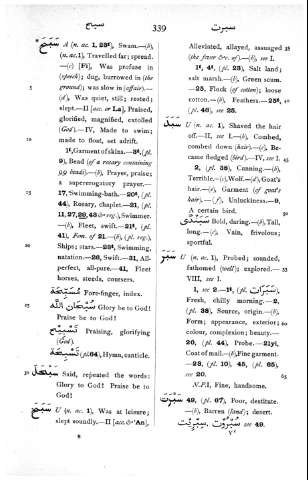 سباح 339 سبرت
سَبَحَ A (n. ac. 1, 23ᵗ), Swam.—(b),
(n. ac.1), Travelled far; spread.
—(c) [Fī], Was profuse in
(speech); dug, burrowed in (the
ground); was slow in (affair).—
(d), Was quiet, still; rested;
slept.—II [acc. or La], Praised,
glorified, magnified, extolled
(God).—IV, Made to swim;
made to float, set adrift.
Garment of skins.—3ᵗ, (pl.
9), Bead (of a rosary containing
99 beads).—(b), Prayer, praise;
a supererogatory prayer.—
17, Swimming-bath.—20ᵗ, (pl.
44), Rosary, chaplet.—21, (pl.
Swimmer.
—(b), Fleet, swift.—21ᵗ, (pl.
41), Fem. of 21.—(b), (pl. reg.),
Ships; stars.—23ᵗ, Swimming,
natation.—26, Swift.—31, All-
perfect, all-pure.—41, Fleet
horses, steeds, coursers.
مُسَبِّحَة Fore-finger, index.
سُبْحَانَ اللّٰه Glory be to God!
Praise be to God!
تَسْبِيْح Praising, glorifying
(God).
تَسْبِيْحَة (pl. 64), Hymn, canticle.
سَبْحَلَ Said, repeated the words:
Glory to God! Praise be to
God!
سَبَخَ U (n. ac. 1), Was at leisure;
slept soundly.—II [acc. & 'An],
Alleviated, allayed, assuaged
(the fever &c. of).—(b), see I.
1ᵗ, 4ᵗ, (pl. 23), Salt land;
salt marsh.—(b), Green scum.
—25, Flock (of cotton); loose
cotton.—(b), Feathers.—25ᵗ,
(pl. 46), see 25.
سَبَدَ U (n. ac. 1), Shaved the hair
off.—II, see I.—(b), Combed,
combed down (hair).—(c), Be-
came fledged (bird).—IV, see I.
2, (pl. 35), Cunning.—(b),
Terrible.—(c), Wolf.—(d), Goat's
hair.—(e), Garment (of goat's
hair).—(f), Unluckiness.—9,
A certain bird.
سَبَنْدَى Bold, daring.—(b), Tall,
long.—(c), Vain, frivolous;
sportful.
سَبَرَ U (n. ac. 1), Probed; sounded,
fathomed (well); explored.—
VIII, see I.
1, see 2.—1ᵗ, (pl. سَبَرَات),
Fresh, chilly morning.—2,
(pl. 38), Source, origin.—(b),
Form; appearance, exterior;
colour, complexion; beauty.—
20, (pl. 44), Probe.—21yi,
Coat of mail.—(b), Fine garment.
—23, (pl. 10), 45, (pl. 65),
see 20.
N.P.I, Fine, handsome.
سُبْرُوت 49, (pl. 67), Poor, destitute.
—(b), Barren (land); desert.
سُبْرُوْت, سِبْرِيْت see 49.